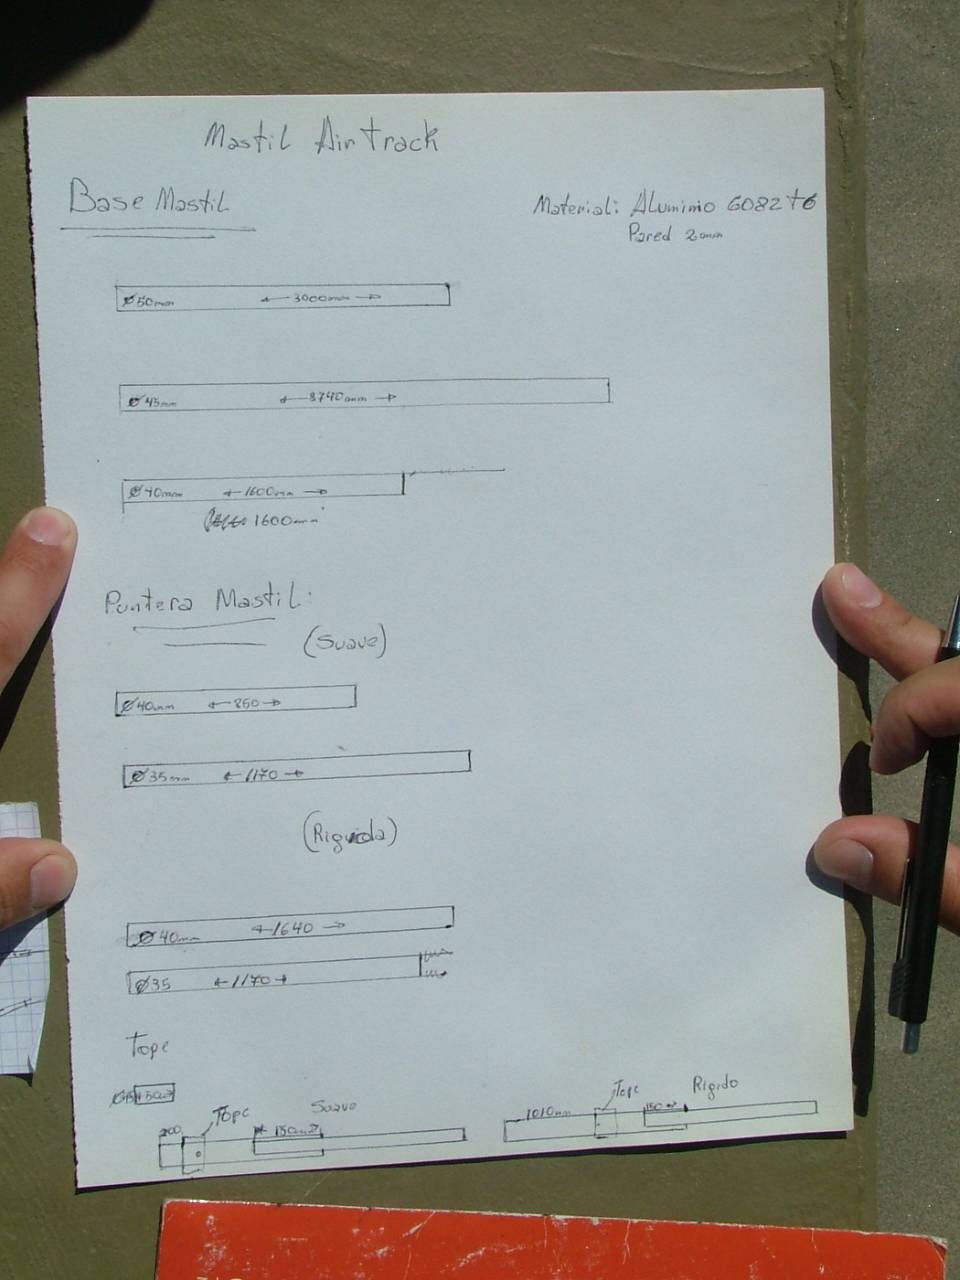 Mastil Airtrack
Base Mastil
Material: Aluminio 6082 t6
Pared 2mm
Ø50mm 3000mm
Ø45mm 3740mm
Ø40mm 1600mm
1600mm
Puntera Mastil:
(Suave)
Ø40mm 850
Ø35mm 1170
(Riguida)
Ø40mm 1640
Ø35 1170
Tope
Ø45
200 Tope 150mm Suave
1010mm Tope 150 Rigido